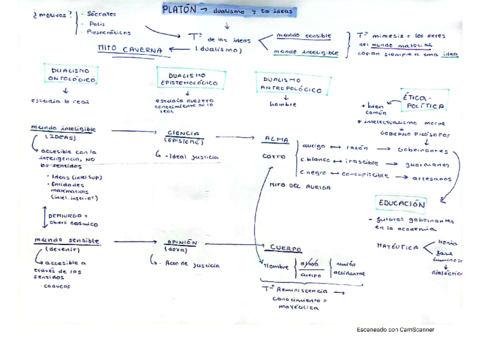 PLATÓN → dualismo y sus ideas
¿motivos?
- Sócrates
- Polis
- Presocráticos
Tª de las ideas
(dualismo)
mundo sensible
mundo inteligible
Tª mimesis = los seres
del mundo material
copian siempre a una idea
MITO CAVERNA
DUALISMO
ONTOLÓGICO
estudia lo real
DUALISMO
EPISTEMOLÓGICO
estudia nuestro
conocimiento
real
DUALISMO
ANTROPOLÓGICO
hombre
ÉTICA-
POLÍTICA
bien
común
intelectualismo moral
GOBIERNO FILÓSOFOS
mundo inteligible
(IDEAS)
accesible con la
inteligencia, NO
los sentidos
- Ideas
- Entidades
matemáticas
DEMIURGO =
CIENCIA
(EPISTEME)
- Ideal justicia
ALMA
CARRO
auriga → razón → Gobernantes
c.blanco → irascible → guardianes
c.negro → concupiscible → artesanos
MITO DEL AURIGA
EDUCACIÓN
- futuros gobernantes
en la academia
MAYÉUTICA
ironía
fase
dialéctica
mundo sensible
(devenir)
accesible a
través de los
sentidos
OPINIÓN
(doxa)
- Acto de justicia
CUERPO
Hombre
alma
cuerpo
unión
accidental
Tª Reminiscencia →
conocimiento =
mayéutica
Escaneado con CamScanner